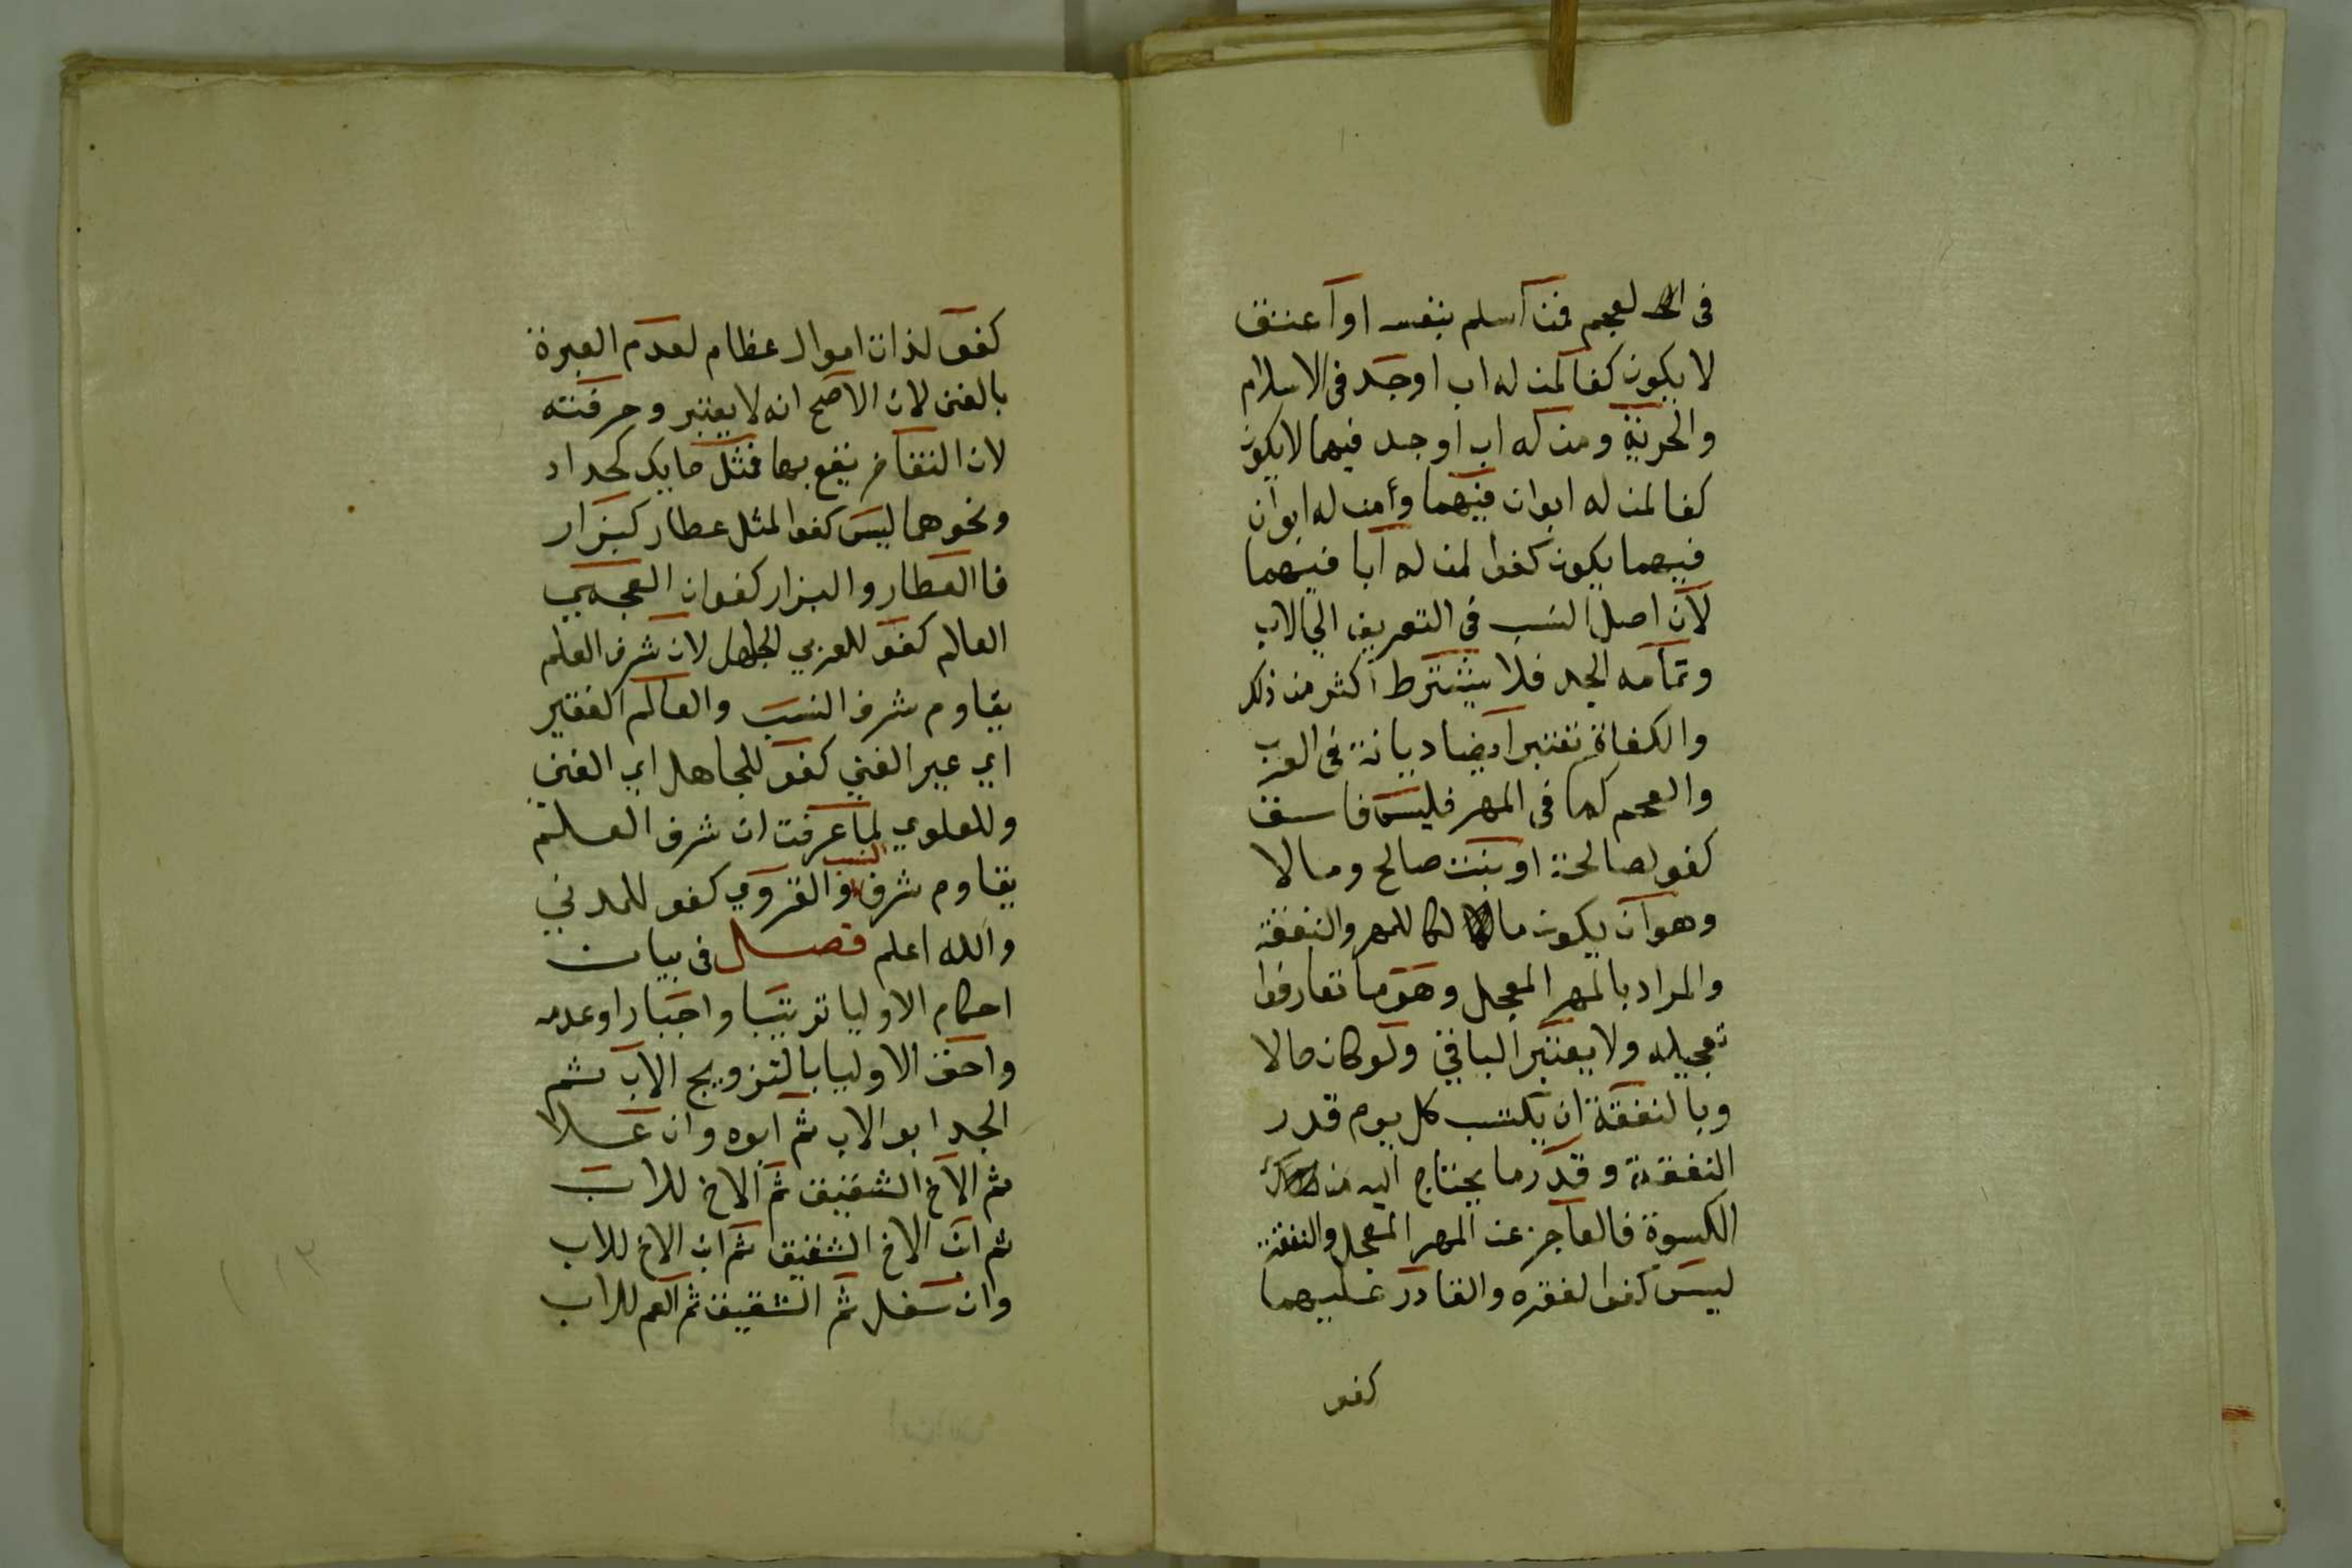 في العجم فمن اسلم بنفسه او اعتق
لا يكون كفا لمن له اب او جد في الاسلام
والحرية ومن له اب او جد فيهما لا يكون
كفا لمن له ابوان فيهما وأمن له ابوان
فيهما يكون كفوا لمن له آبا فيهما
لان اصل النسب في التعريف الي الاب
وتمامه الجد فلا يشترط اكثر من ذلك
والكفاة تعتبر ايضا ديانة في العرب
والعجم كما في المهر فليس فاسق
كفو لصالحة او بنت صالح ومالا
وهو ان يكون مالكا للمهر والنفقة
والمراد بالمهر المعجل وهو ما تعارفوا
تعجيله ولا يعتبر الباقي ولو كان حالا
وبالنفقة ان يكتسب كل يوم قدر
النفقة وقدر ما يحتاج اليه من
الكسوة فالعاجز عن المهر المعجل والنفقة
ليس كفوا لفقره والقادر عليهما
كفو
كفو لذات اموال عظام لعدم العبرة
بالغنى لان الاصح انه لا يعتبر وحرفته
لان التفاخر يقع بها فمثل حايك كحداد
ونحوهما ليس كفوا لمثل عطار كبزار
فاالعطار والبزار كفوان العجمي
العالم كفو للعربي الجاهل لان شرف العلم
يقاوم شرف النسب والعالم الفقير
اي غير الغني كفو للجاهل اي الغني
وللعلوي لما عرفت ان شرف العلم
يقاوم شرف النسب والقروي كفو للمدني
والله اعلم فصل في بيان
احكام الاوليا ترتيبا واجبارا وعدمه
واحق الاوليا بالتزويج الاب ثم
الجد ابو الاب ثم ابوه وان علا
ثم الاخ الشقيق ثم الاخ للاب
ثم ابن الاخ الشقيق ثم ابن الاخ للاب
وان سفل ثم الشقيق ثم العم للاب